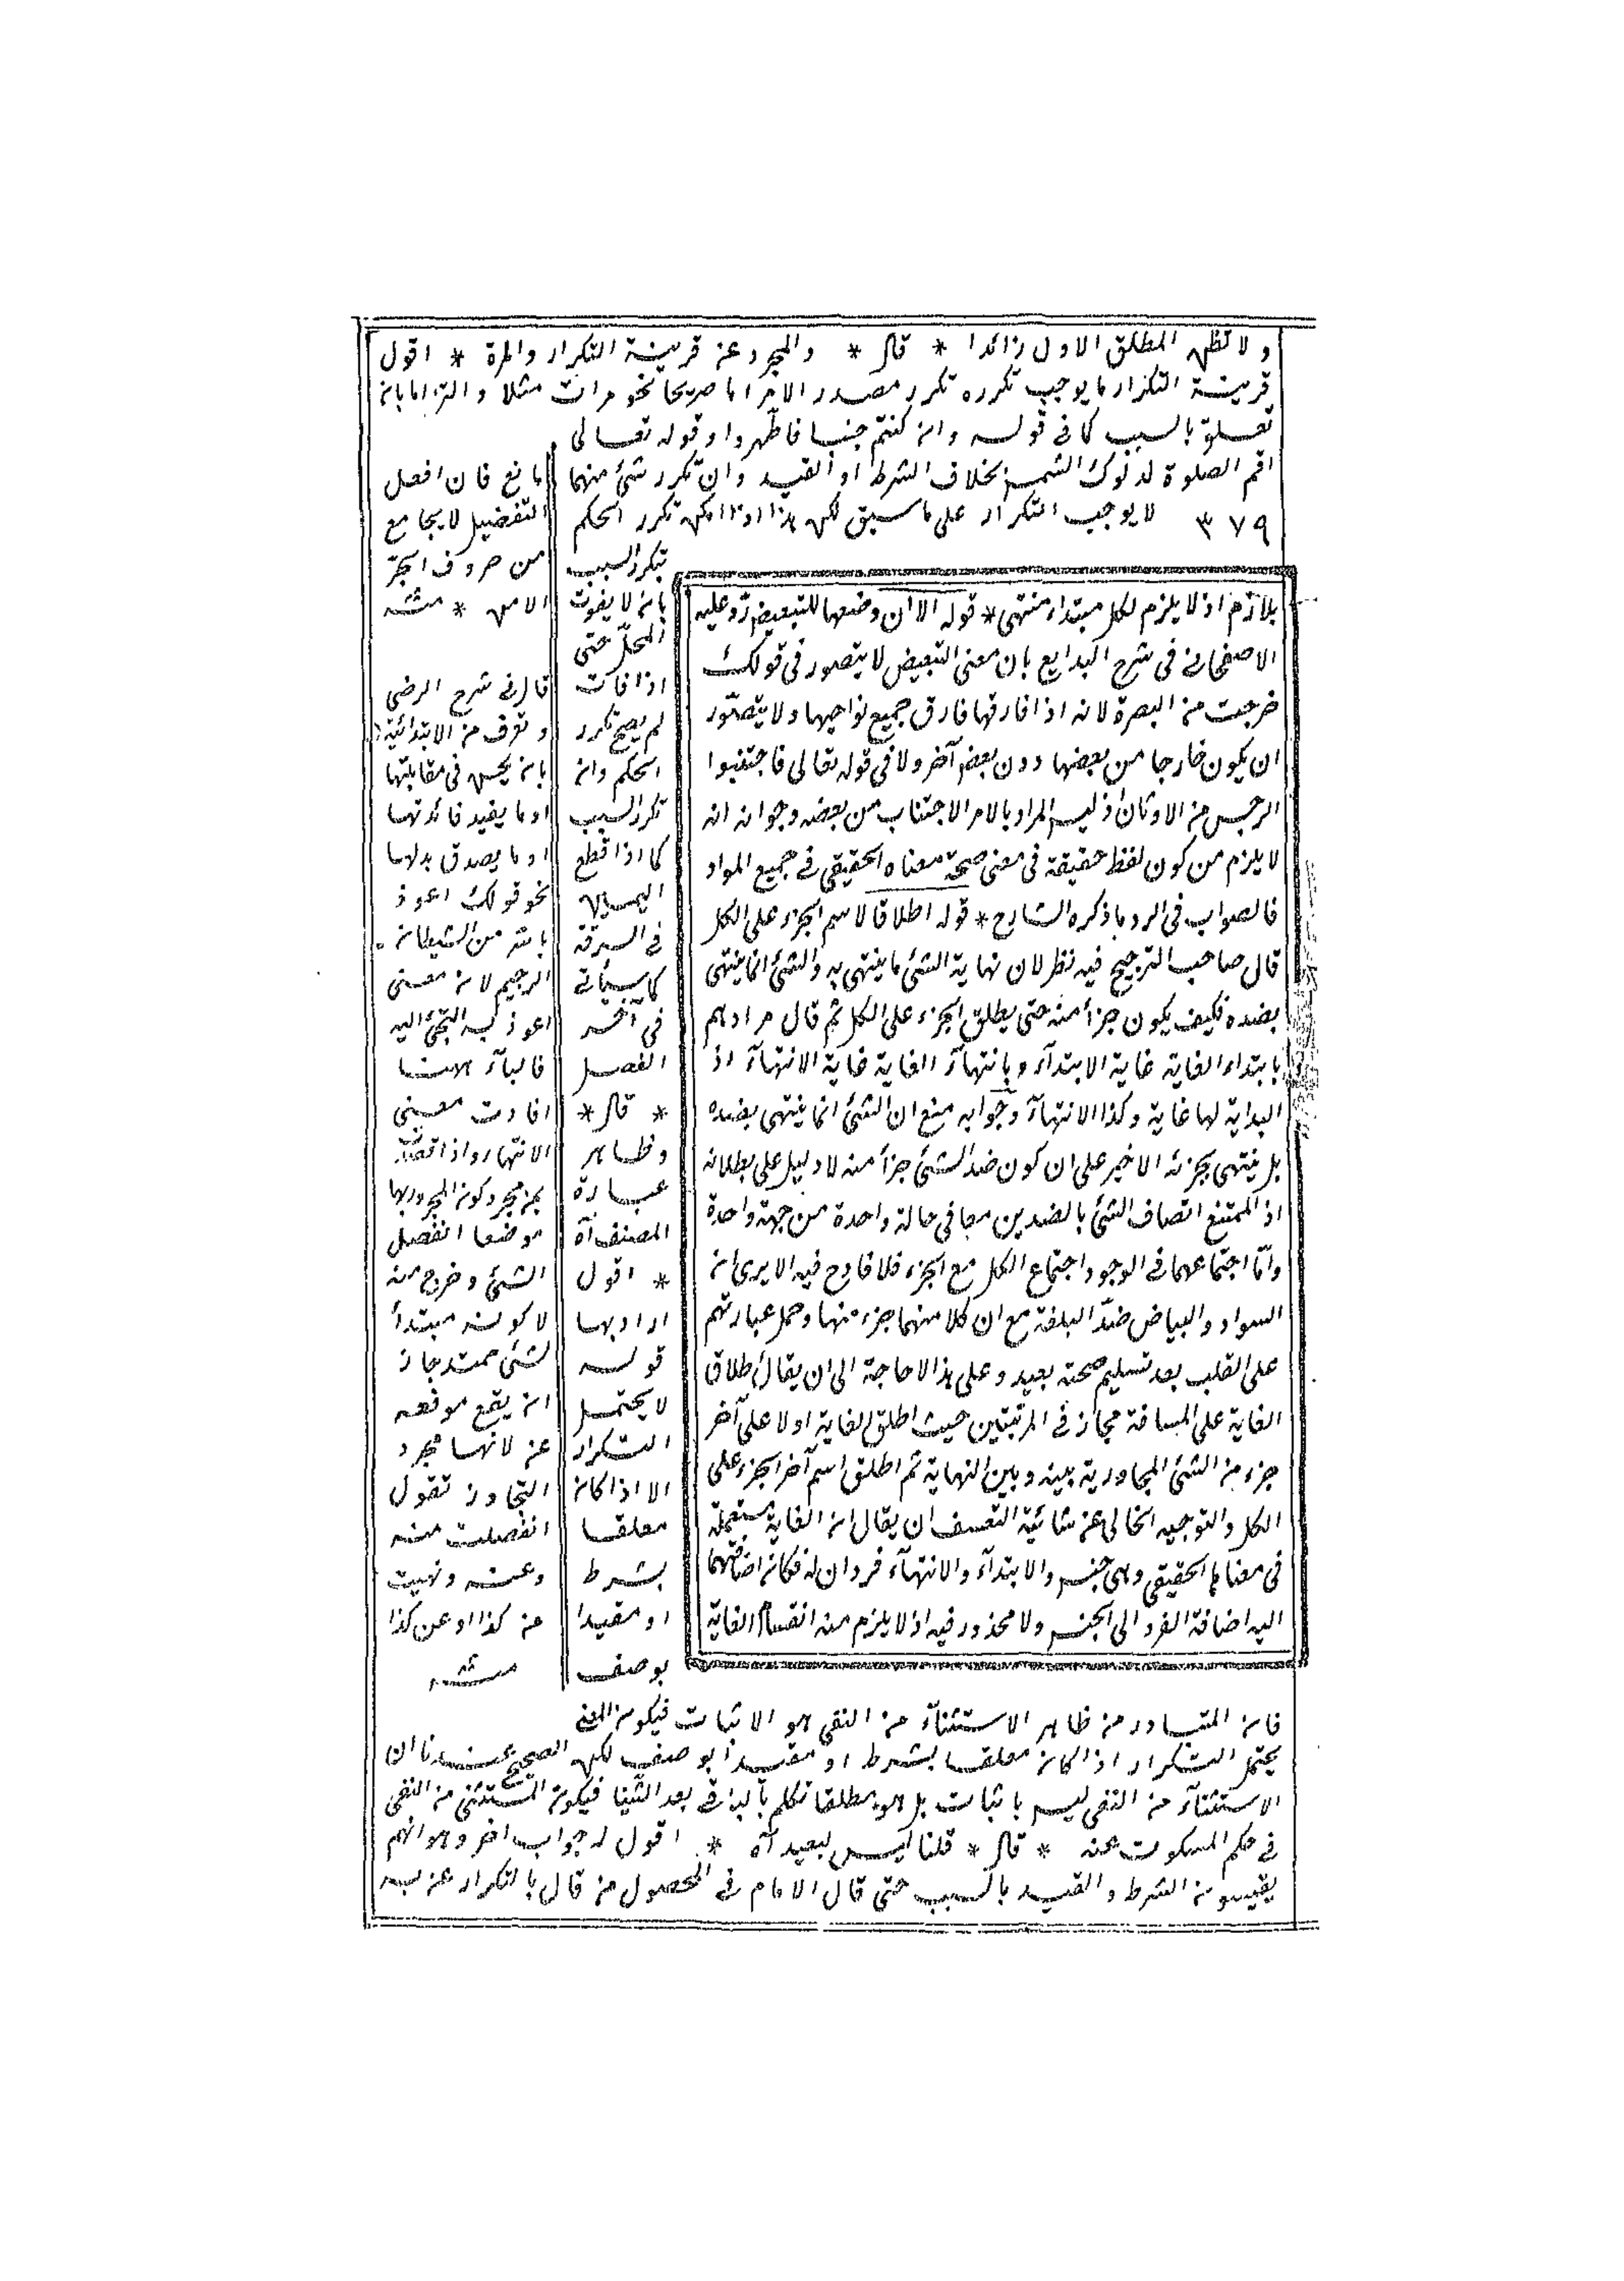 ولا تظن المطلق الاول زائدا * قال * والمجرد عن قرينة التكرار والمرة * اقول
قرينة التكرار ما يوجب تكرره تكرر مصدر الامر اما صريحا نحو مرات مثلا والتزاما بان
تعلق بالسبب كما فى قوله وان كنتم جنبا فاطهروا وقوله تعالى
اقم الصلوة لدلوك الشمس بخلاف الشرط او القيد وان تكرر شئ منهما
٣٧٩ لا يوجب التكرار على ما سبق لكن هذا اذا امكن تكرر الحكم
بتكرر السبب
بان لا يفوت
المحل حتى
اذا فات
لم يصح تكرر
الحكم وان
تكرر السبب
كما اذا قطع
اليسار
فى السرقة
كما سيأتى
فى آخر
الفصل
* قال *
وظاهر
عبارة
المصنف آه
* اقول
اراد بها
قوله
لا يحتمل
التكرار
الا اذا كان
معلقا
بشرط
او مقيدا
بوصف
فان المتبادر من ظاهر الاستثناء من النفى هو الاثبات فيكون المعنى
يحتمل التكرار اذا كان معلقا بشرط او مقيدا بوصف لكن الصحيح عندنا ان
الاستثناء من النفى ليس باثبات بل هو مطلقا تكلم بالباقى بعد الثنيا فيكون المستثنى من النفى
فى حكم المسكوت عنه * قال * قلنا ليس ببعيد آه * اقول له جواب اخر وهو انهم
يقيسون الشرط والقيد بالسبب حتى قال الامام فى المحصول من قال بالتكرار
بلازم اذ لا يلزم لكل مبتداء منتهى * قوله الا ان وضعها للتبعيض رد عليه
الاصفهانى فى شرح البدايع بان معنى التبعيض لا يتصور فى قولك
خرجت من البصرة لانه اذا فارقها فارق جميع نواحيها ولا يتصور
ان يكون خارجا من بعضها دون بعض آخر ولا فى قوله تعالى فاجتنبوا
الرجس من الاوثان اذ ليس المراد بالامر الاجتناب من بعضه وجوابه انه
لا يلزم من كون لفظ حقيقة فى معنى صحة معناه الحقيقى فى جميع المواد
فالصواب فى الرد ما ذكره الشارح * قوله اطلاقا لاسم الجزء على الكل
قال صاحب الترجيح فيه نظر لان نهاية الشئ ما ينتهى به والشئ انما ينتهى
بضده فكيف يكون جزأ منه حتى يطلق الجزء على الكل ثم قال مرادهم
بابتداء الغاية غاية الابتداء وبانتهاء الغاية غاية الانتهاء اذ
البداية لها غاية وكذا الانتهاء وجوابه منع ان الشئ انما ينتهى بضده
بل ينتهى بجزئه الاخير على ان كون ضد الشئ جزأ منه لا دليل على بطلانه
اذ الممتنع اتصاف الشئ بالضدين معا فى حالة واحدة من جهة واحدة
واما اجتماعهما فى الوجود اجتماع الكل مع الجزء فلا قادح فيه الا يرى ان
السواد والبياض ضد البلقة مع ان كلا منهما جزء منها وحمل عبارتهم
على القلب بعد تسليم صحته بعيد وعلى هذا لا حاجة الى ان يقال اطلاق
الغاية على المسافة مجاز فى المرتبتين حيث اطلق الغاية اولا على آخر
جزء من الشئ بينه وبين النهاية ثم اطلق اسم آخر الجزء على
الكل والتوجيه الخالى عن شائبة التعسف ان يقال ان الغاية مستعملة
فى معناها الحقيقى وهى جنس والابتداء والانتهاء فردان له فكان اضافتهما
اليه اضافة الفرد الى الجنس ولا محذور فيه اذ لا يلزم منه انقسام الغاية
مانع فان افعل
التفضيل لا يجامع
من حروف الجر
الا من * منه
قال فى شرح الرضى
وتعرف من الابتدائية
بان يحسن فى مقابلتها
او ما يفيد فائدتها
او ما يصدق بدلها
نحو قولك اعوذ
بالله من الشيطان
الرجيم لان معنى
اعوذ به التجئ اليه
فالباء ههنا
افادت معنى
الانتهاء واذا قصدت
بمن مجرد كون المجرور بها
موضعا انفصل
الشئ وخرج منه
لا كونه مبتدأ
لشئ ممتد جاز
ان يقع موقعه
عن لانها مجرد
التجاوز تقول
انفصلت منه
وعنه ونهيت
من كذا او عن كذا
منه